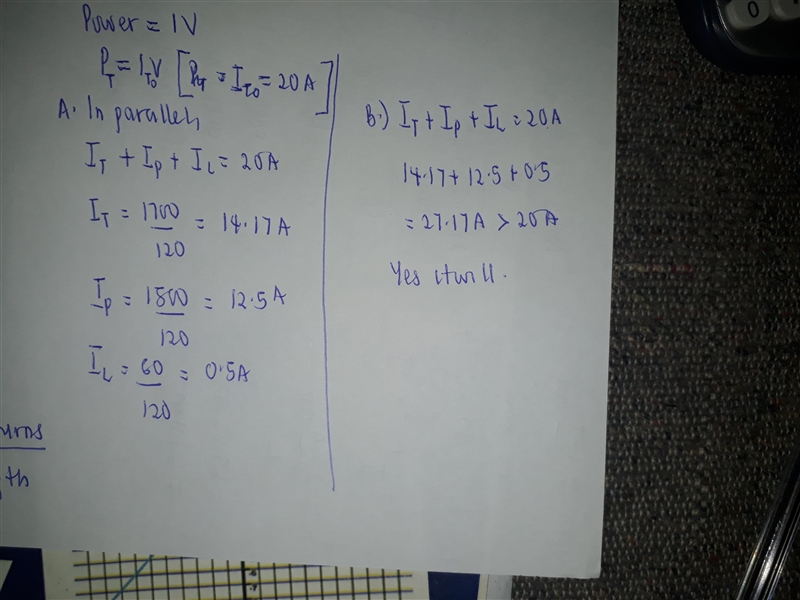 Power = IV
P_T = I_To V [P_T = I_To = 20A]
A. In parallel,
I_T + I_P + I_L = 20A
I_T = 1700/120 = 14.17A
I_P = 1500/120 = 12.5A
I_L = 60/120 = 0.5A
B.) I_T + I_P + I_L = 20A
14.17 + 12.5 + 0.5
= 27.17A > 20A
Yes it will.
urns
th
0